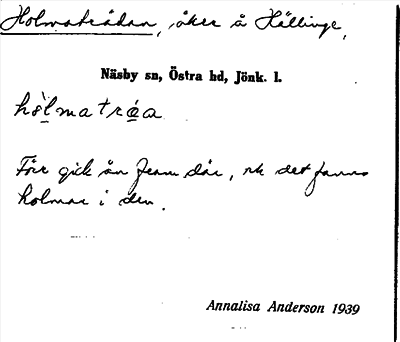 Holmatrådan, åker å Hällinge,
Näsby sn, Östra hd, Jönk. l.
hòlmatrɑ́a
Förr gick ån fram där, ok det fanns
holmar i den.
Annalisa Anderson 1939